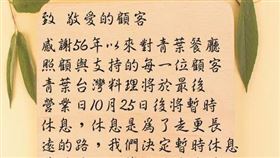 致 敬愛的顧客
感謝56年以來對青葉餐廳
照顧與支持的每一位顧客
青葉台灣料理將於最後
營業日10月25日後將暫時
休息，休息是為了走更長
遠的路，我們決定暫時休息